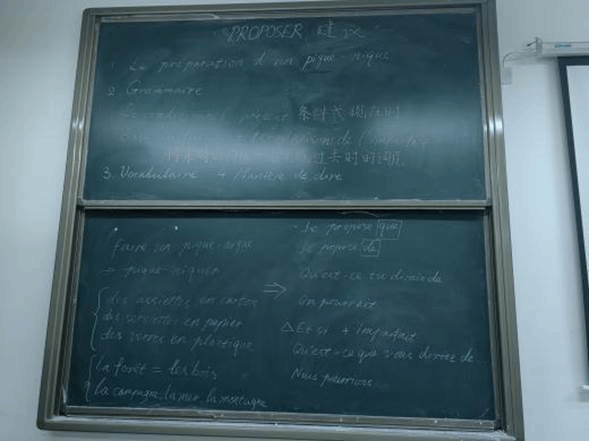 PROPOSER 建议
1 La préparation d'un pique-nique
2 Grammaire
présent 条件式现在时
l'imparfait
过去时
3. Vocabulaire 4 Manière de dire
Faire un pique-nique
→ pique-niquer
des assiettes en carton
des serviettes en papier
des verres en plastique
La forêt = les bois
la campagne, la mer, la montagne
- Je propose que
Je propose de
Qu'est-ce tu dirais de
⇒ On pourrait
△ Et si + imparfait
Qu'est-ce que vous diriez de
Nous pourrions